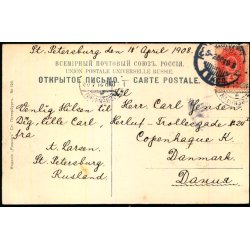 St. Petersburg den 18 April 1908.
ВСЕМІРНЫЙ ПОЧТОВЫЙ СОЮЗЪ. РОССІЯ.
UNION POSTALE UNIVERSELLE RUSSIE
ОТКРЫТОЕ ПИСЬМО. CARTE POSTALE.
Til
Venlig Hilsen til
Dig, lille Carl,
fra
A. Larsen
St. Petersburg
Rusland
Herr. Carl Jensen
Herluf-Trollesgade
Copenhague K
Danmark
Данія